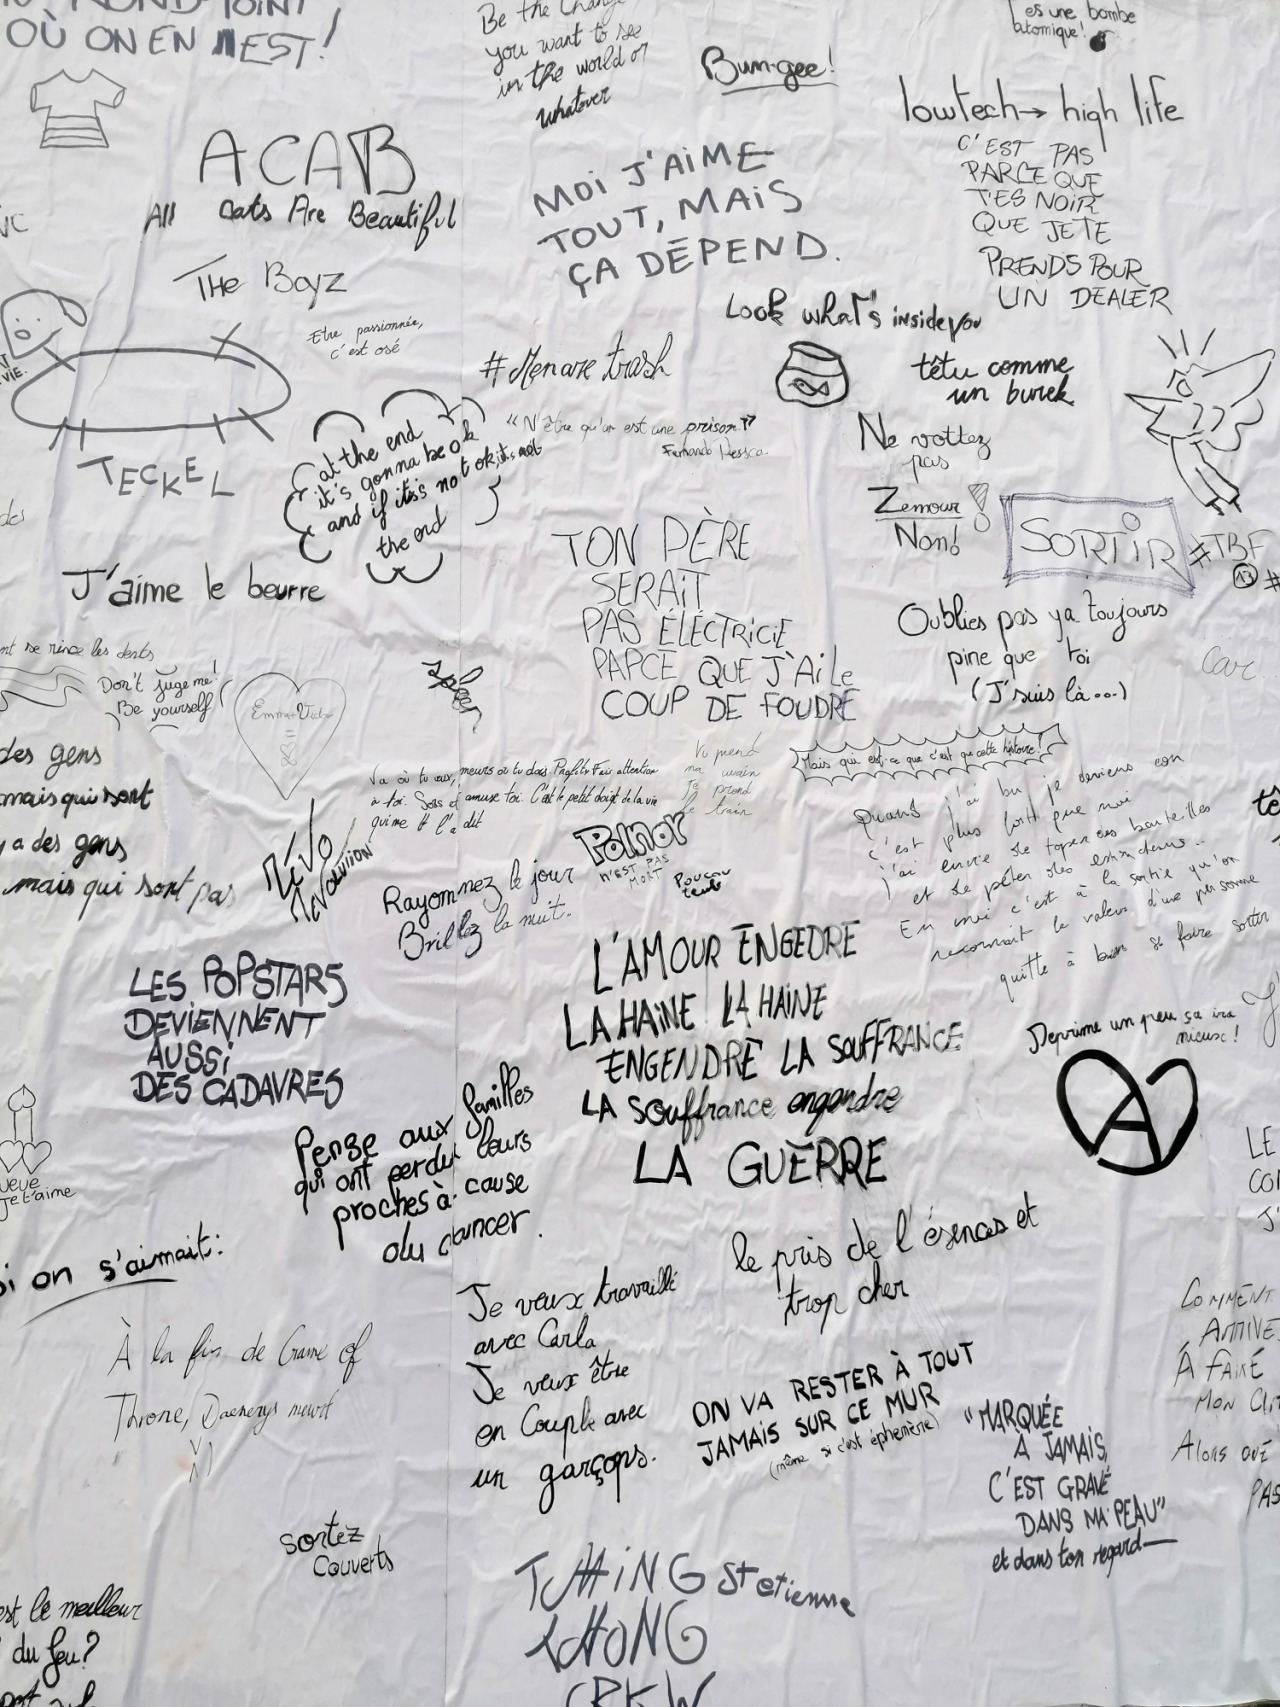 ROND-POINT
OÙ ON EN EST!
Be the change
you want to see
in the world or
whatever
Bum-gee!
es une bombe
atomique!
lowtech → high life
ACAB
All Cats Are Beautiful
MOI J'AIME
TOUT, MAIS
ÇA DÉPEND.
C'EST PAS
PARCE QUE
T'ES NOIR
QUE JE TE
PRENDS POUR
UN DEALER
THe Boyz
Look what's inside you
Etre passionnée,
c'est osé
#Menare trash
têtu comme
un burek
VIE.
TECKEL
at the end
it's gonna be ok
and if it's not ok, it's not
the end
"N'être qu'un est une prison"
Fernando Pessoa
Ne vottez
pas
Zemour
Non!
SORTIR
#TBF
13 #
J'aime le beurre
TON PÈRE
SERAIT
PAS ÉLECTRICIE
PARCE QUE J'AI Le
COUP DE FOUDRE
Oublies pas ya toujours
pine que toi
(J'suis là...)
Car
se rince les dents
Don't juge me!
Be yourself
Emma
=
des gens
mais qui sont
y a des gens
mais qui sont pas
Va où tu veux, meurs où tu dois Profite Fais attention
à toi. Sors et amuse toi. C'est le petit doigt de la vie
qui me l'a dit
prend
ma main
Je prend
le train
Mais qui est-ce que c'est que cette histoire!
Quand j'ai bu je deviens con
c'est plus fort que moi
j'ai envie de taper des bouteilles
et de péter des extincteurs..
En moi c'est à la sortie qu'on
reconnait la valeur d'une personne
quitte à bien se faire sortir
RÉVO
RÉVOLUTION
POLNOR
N'EST PAS
MORT
Rayonnez le jour
Brillez la nuit.
LES POPSTARS
DEVIENNENT
AUSSI
DES CADAVRES
L'AMOUR ENGEDRE
LA HAINE LA HAINE
ENGENDRE LA SOUFFRANCE
LA souffrance engendre
LA GUERRE
Deprime un peu sa ira
mieux!
A
Pense aux familles
qui ont perdu leurs
proches à cause
du cancer.
Je t'aime
si on s'aimait:
le pris de l'ésences et
trop cher
À la fin de Game of
Throne, Daenerys meurt
Je veux travaillé
avec Carla
Je veux être
en Couple avec
un garçons.
ON VA RESTER À TOUT
JAMAIS SUR CE MUR
(même si c'est éphémère)
"MARQUÉE
À JAMAIS,
C'EST GRAVÉ
DANS MA PEAU"
et dans ton regard—
LE
J'
COMMENT
ARRIVE
À FAIRE
MON
Alors que
PAS
sortez
Couverts
St etienne
est le meilleur
du feu?